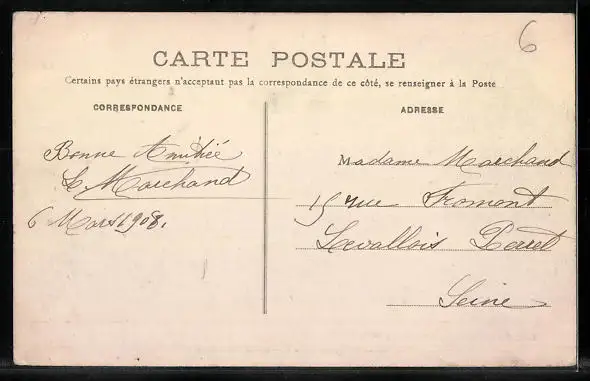 6
CARTE POSTALE
Certains pays étrangers n'acceptant pas la correspondance de ce côté, se renseigner à la Poste
CORRESPONDANCE
Bonne Amitiée
L Marchand
6 Mars 1908.
ADRESSE
Madame Marchand
15 rue Fromont
Levallois Perret
Seine